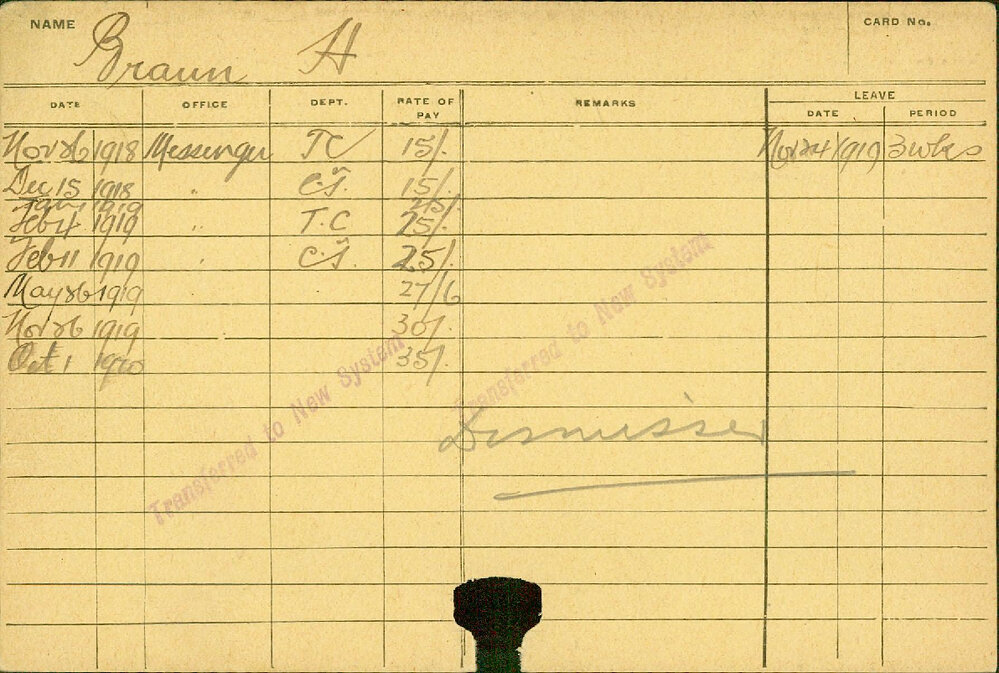 NAME Braun H CARD No.
LEAVE
DATE OFFICE DEPT. RATE OF PAY REMARKS DATE PERIOD
Nov 26 1918 Messenger TC 15/. Nov 24 1919 3 wks
Dec 15 1918 " C.T. 15/.
Jan 1 1919 25/.
Feb 4 1919 " T.C 25/.
Feb 11 1919 " C.T. 25/.
May 26 1919 27/6
Nov 26 1919 30/.
Oct 1 1920 35/.
Transferred to New System
Transferred to New System
Dismissed